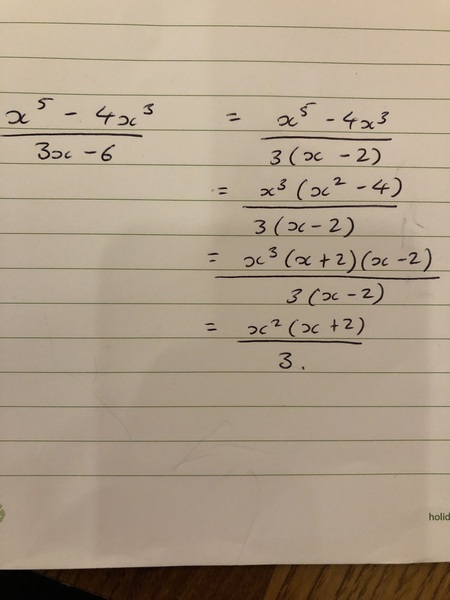 x⁵ - 4x³ / 3x - 6 = x⁵ - 4x³ / 3(x - 2)
= x³(x² - 4) / 3(x - 2)
= x³(x + 2)(x - 2) / 3(x - 2)
= x²(x + 2) / 3.
holid